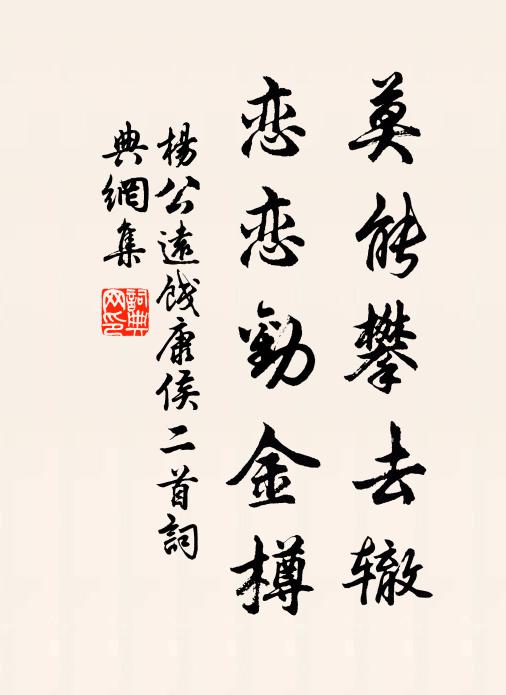 莫能攀去辙
恋恋勸金樽
楊公遠餞康侯二首詞
典網集
詞典网印